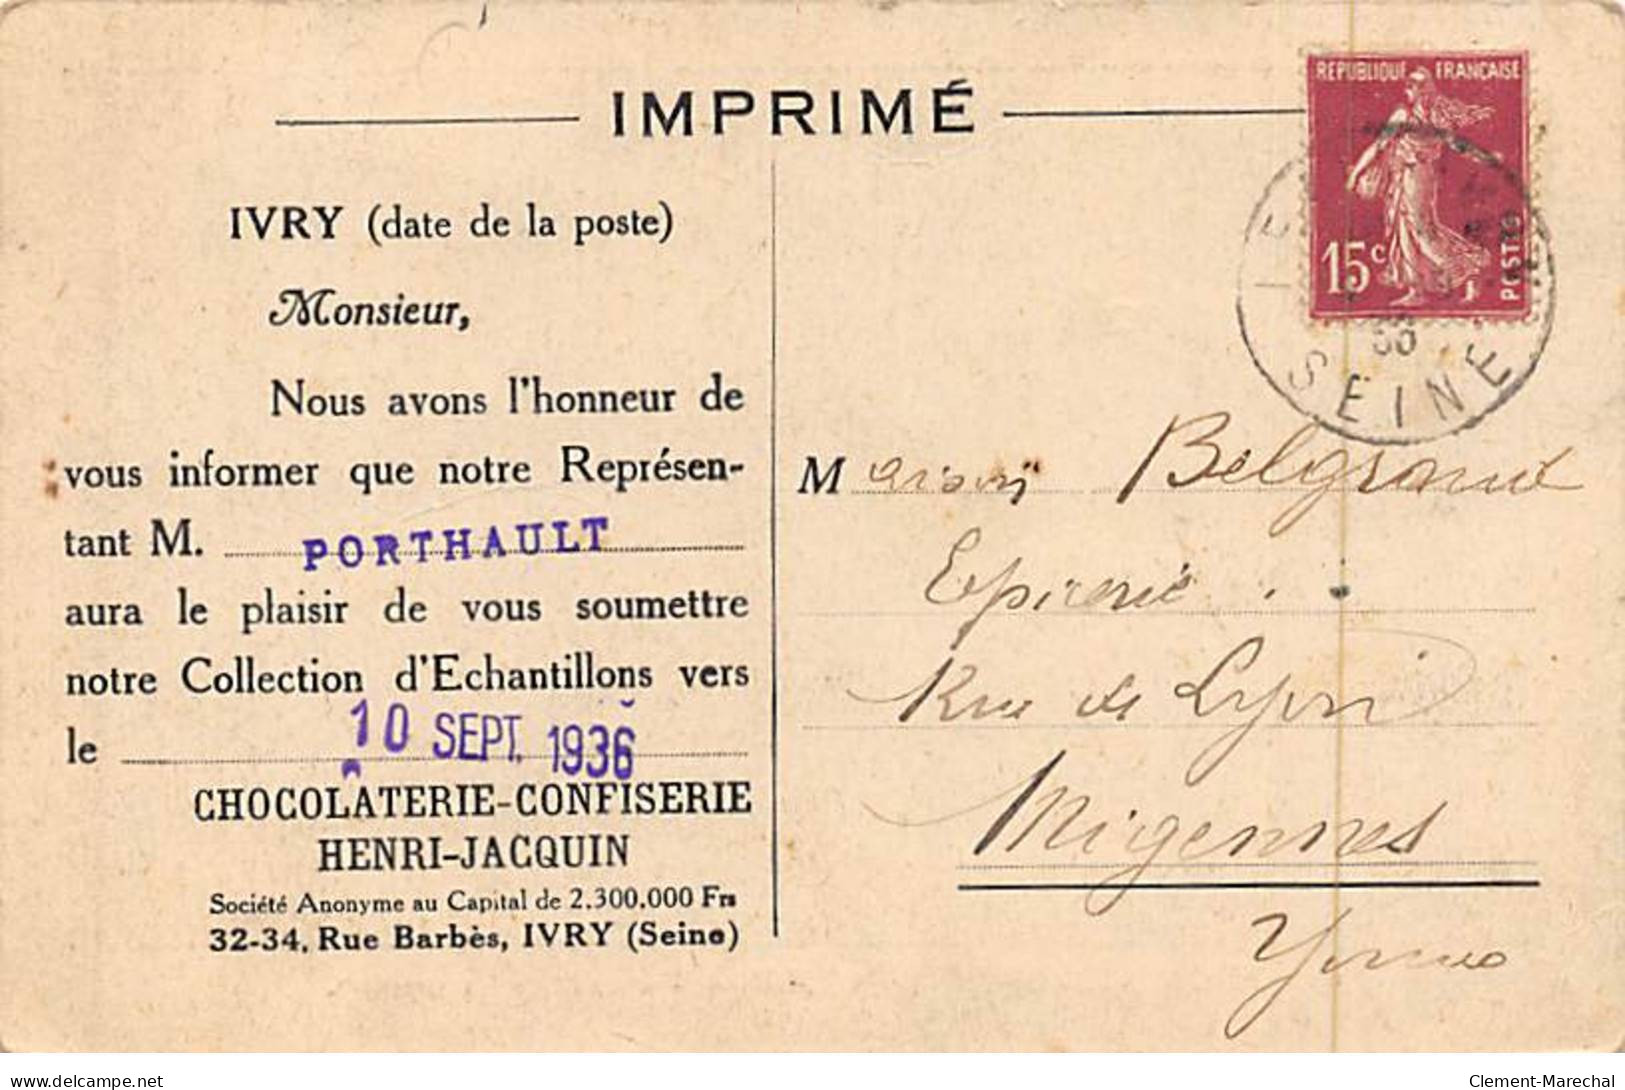 IMPRIMÉ
RÉPUBLIQUE FRANÇAISE
15c
POSTES
SEINE
IVRY (date de la poste)
Monsieur,
Nous avons l'honneur de
vous informer que notre Représen-
tant M. PORTHAULT
aura le plaisir de vous soumettre
notre Collection d'Echantillons vers
le 10 SEPT. 1936
CHOCOLATERIE-CONFISERIE
HENRI-JACQUIN
Société Anonyme au Capital de 2.300.000 Frs
32-34, Rue Barbès, IVRY (Seine)
Maison Belgrand
Epicerie
Rue de Lyon
Migennes
Yonne
delcampe.net
Clement-Marechal